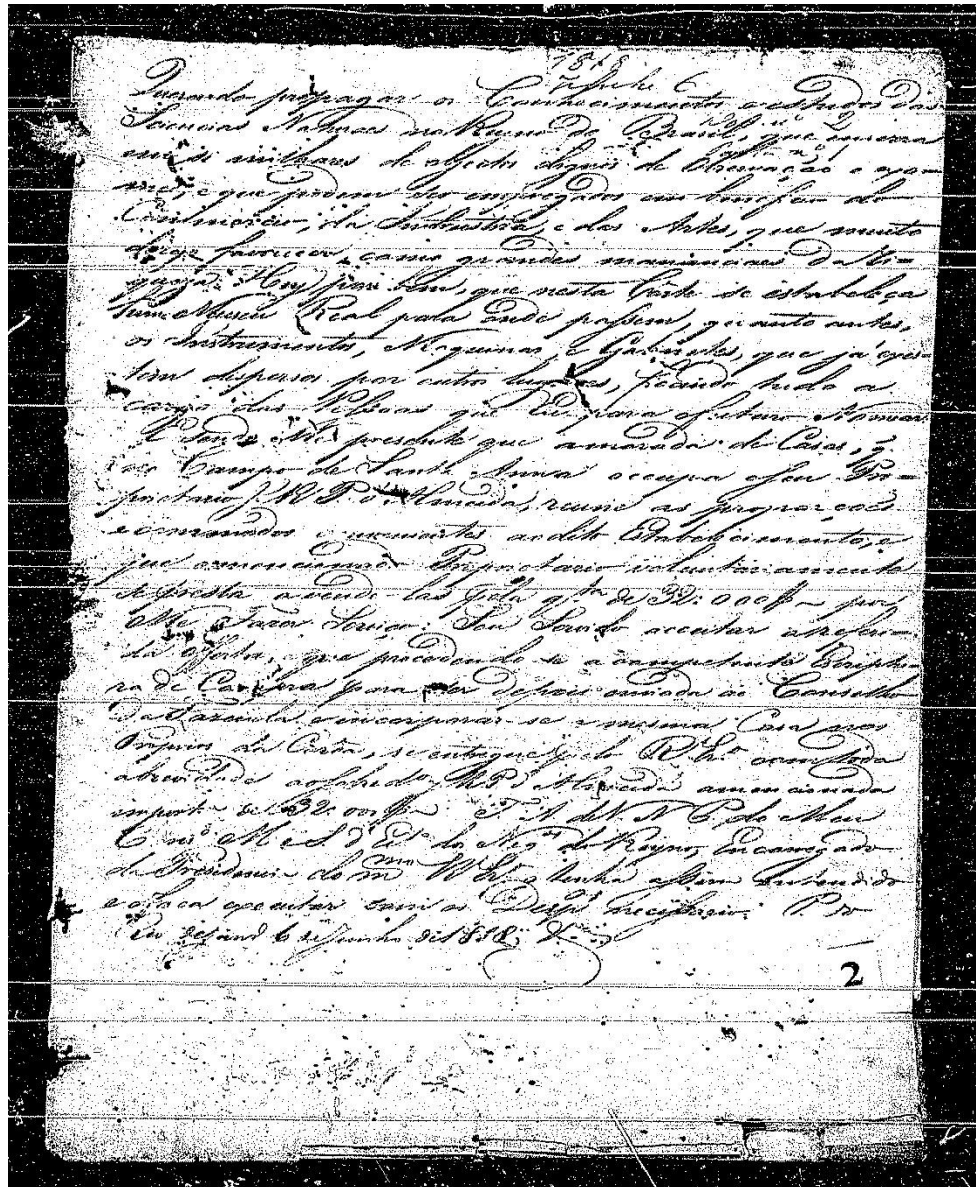 1818
Junho 6
Querendo propagar os Conhecimentos e estudos das
Sciencias Naturaes no Reino do Brasil, que encerra
em si milhares de objectos dignos de Observação e exa-
me, e que podem ser empregados em beneficio do
Commercio, da Industria, e das Artes, que muito
dezejo favorecer, como grandes mananciaes da ri-
queza: Hey por bem, que nesta Côrte se estabeleça
hum Museu Real para onde passem, quanto antes,
os Instrumentos, Maquinas, e Gabinetes, que já exis-
tem dispersos por outros lugares, ficando tudo a
cargo das Pessoas que Eu para o futuro Nomear.
E sendo-Me presente que a morada de Casas, q.
no Campo de Santa Anna occupa o seu Pro-
prietario J. R. P. d'Almeida, reune as proporçoes
e commodos convenientes ao dito Estabelecimento, e
que o mencionado Proprietario voluntariamente
se presta a vende-las pela q.tia de 32:000$ por
Me Fazer Serviço: Sou Servido acceitar a referi-
da offerta, e que procedendo-se a competente Escriptu-
ra de Compra para ser depois enviada ao Conselho
da Fazenda, e incorporar-se a mesma Casa nos
Proprios da Corôa, se entregue pelo R. Er.o com toda
a brevidade ao sobred.o J. R. P. d'Almeida a mencionada
import.a de 32:000$ T. A. de V. N. P. do Meu
C. M. e S. d'Est. dos Neg. do Reyno, Encarregado
da Presidencia do m.mo R. Er.o o tenha assim entendido
e o faça executar com os Desp. necessarios. P.
Rio de Jan.o 6 de Junho de 1818
2